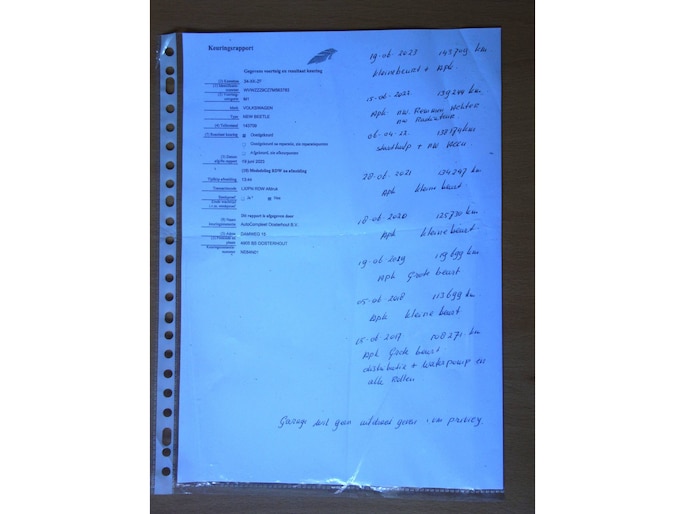 Keuringsrapport
Gegevens voertuig en resultaat keuring
(1) Kenteken
(2) Meldcode
nummer
(5) Voertuig-
categorie M1
Merk VOLKSWAGEN
Type NEW BEETLE
(4) Tellerstand 143709
(7) Resultaat keuring Goedgekeurd
Goedgekeurd na reparatie, zie reparatiepunten
Afgekeurd, zie afkeurpunten
afgifte rapport 19 juni 2023
(10) Mededeling RDW na afmelding
Tijdstip afmelding
Transactiecode
Steekproef Ja* Nee
Dit rapport is afgegeven door
(9) Naam
keuringsinstantie AutoCompleet Oosterhout B.V.
(3) Adres DAMWEG 15
plaats OOSTERHOUT
nummer
19-06-2023 143709 km
kleine beurt + Apk.
15-06-2022 139244 km
Apk. nw. Remmen Achter
nw Radiateur
06-04-22.
starthulp + nw
28-06-2021 134247 km
Apk kleine beurt
18-06-2020 125730 km
Apk kleine beurt
19-06-2019 119699 km
Apk Grote beurt
05-06-2018 113699 km
Apk kleine beurt
15-06-2017 108271 km
Apk Grote beurt
distributie + Waterpomp en
alle Rollen
Garage wil geen uitdraai geven ivm privacy.